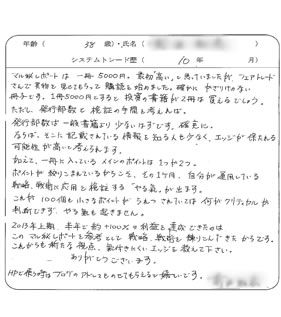 年齢（ 38 歳）・氏名（
システムトレード歴（ 10 年 月）
マル秘レポートは一冊5000円。最初高い。と思っていましたが、フェアトレード
さんで実物を見せてもらって購読を始めました。確かに、やぎりがない
冊子です。1冊5000円とすると投資の書籍が2冊は買えるでしょう。
ただし、発行部数と検証の手間を考えれば。
発行部数は一般書籍より少ないはずです。確実に。
ならば、そこに記載されている情報を知る人も少なく、エッジが保たれる
可能性が高いと考えられます。
加えて、一冊に入っているメインのポイントは1つか2つ。
ポイントが絞りこまれているからこそ、その1ヶ月、自分が運用している
戦略、戦術に応用と検証する「やる気」が出ます。
これが100個も小さなポイントがうもっていては何がクリティカルか
判断できず、やる気も起きません。
2013年上期、半年で約+100%の利益を達成できたのは
このマル秘レポートを参考として戦略、戦術を練りこんできたからです。
これからも新たな視点、気付きにくいエッジを教えて下さい。
ありがとうございます。
HPで使う時はブログのアドレスものせてもらえると嬉しいです。